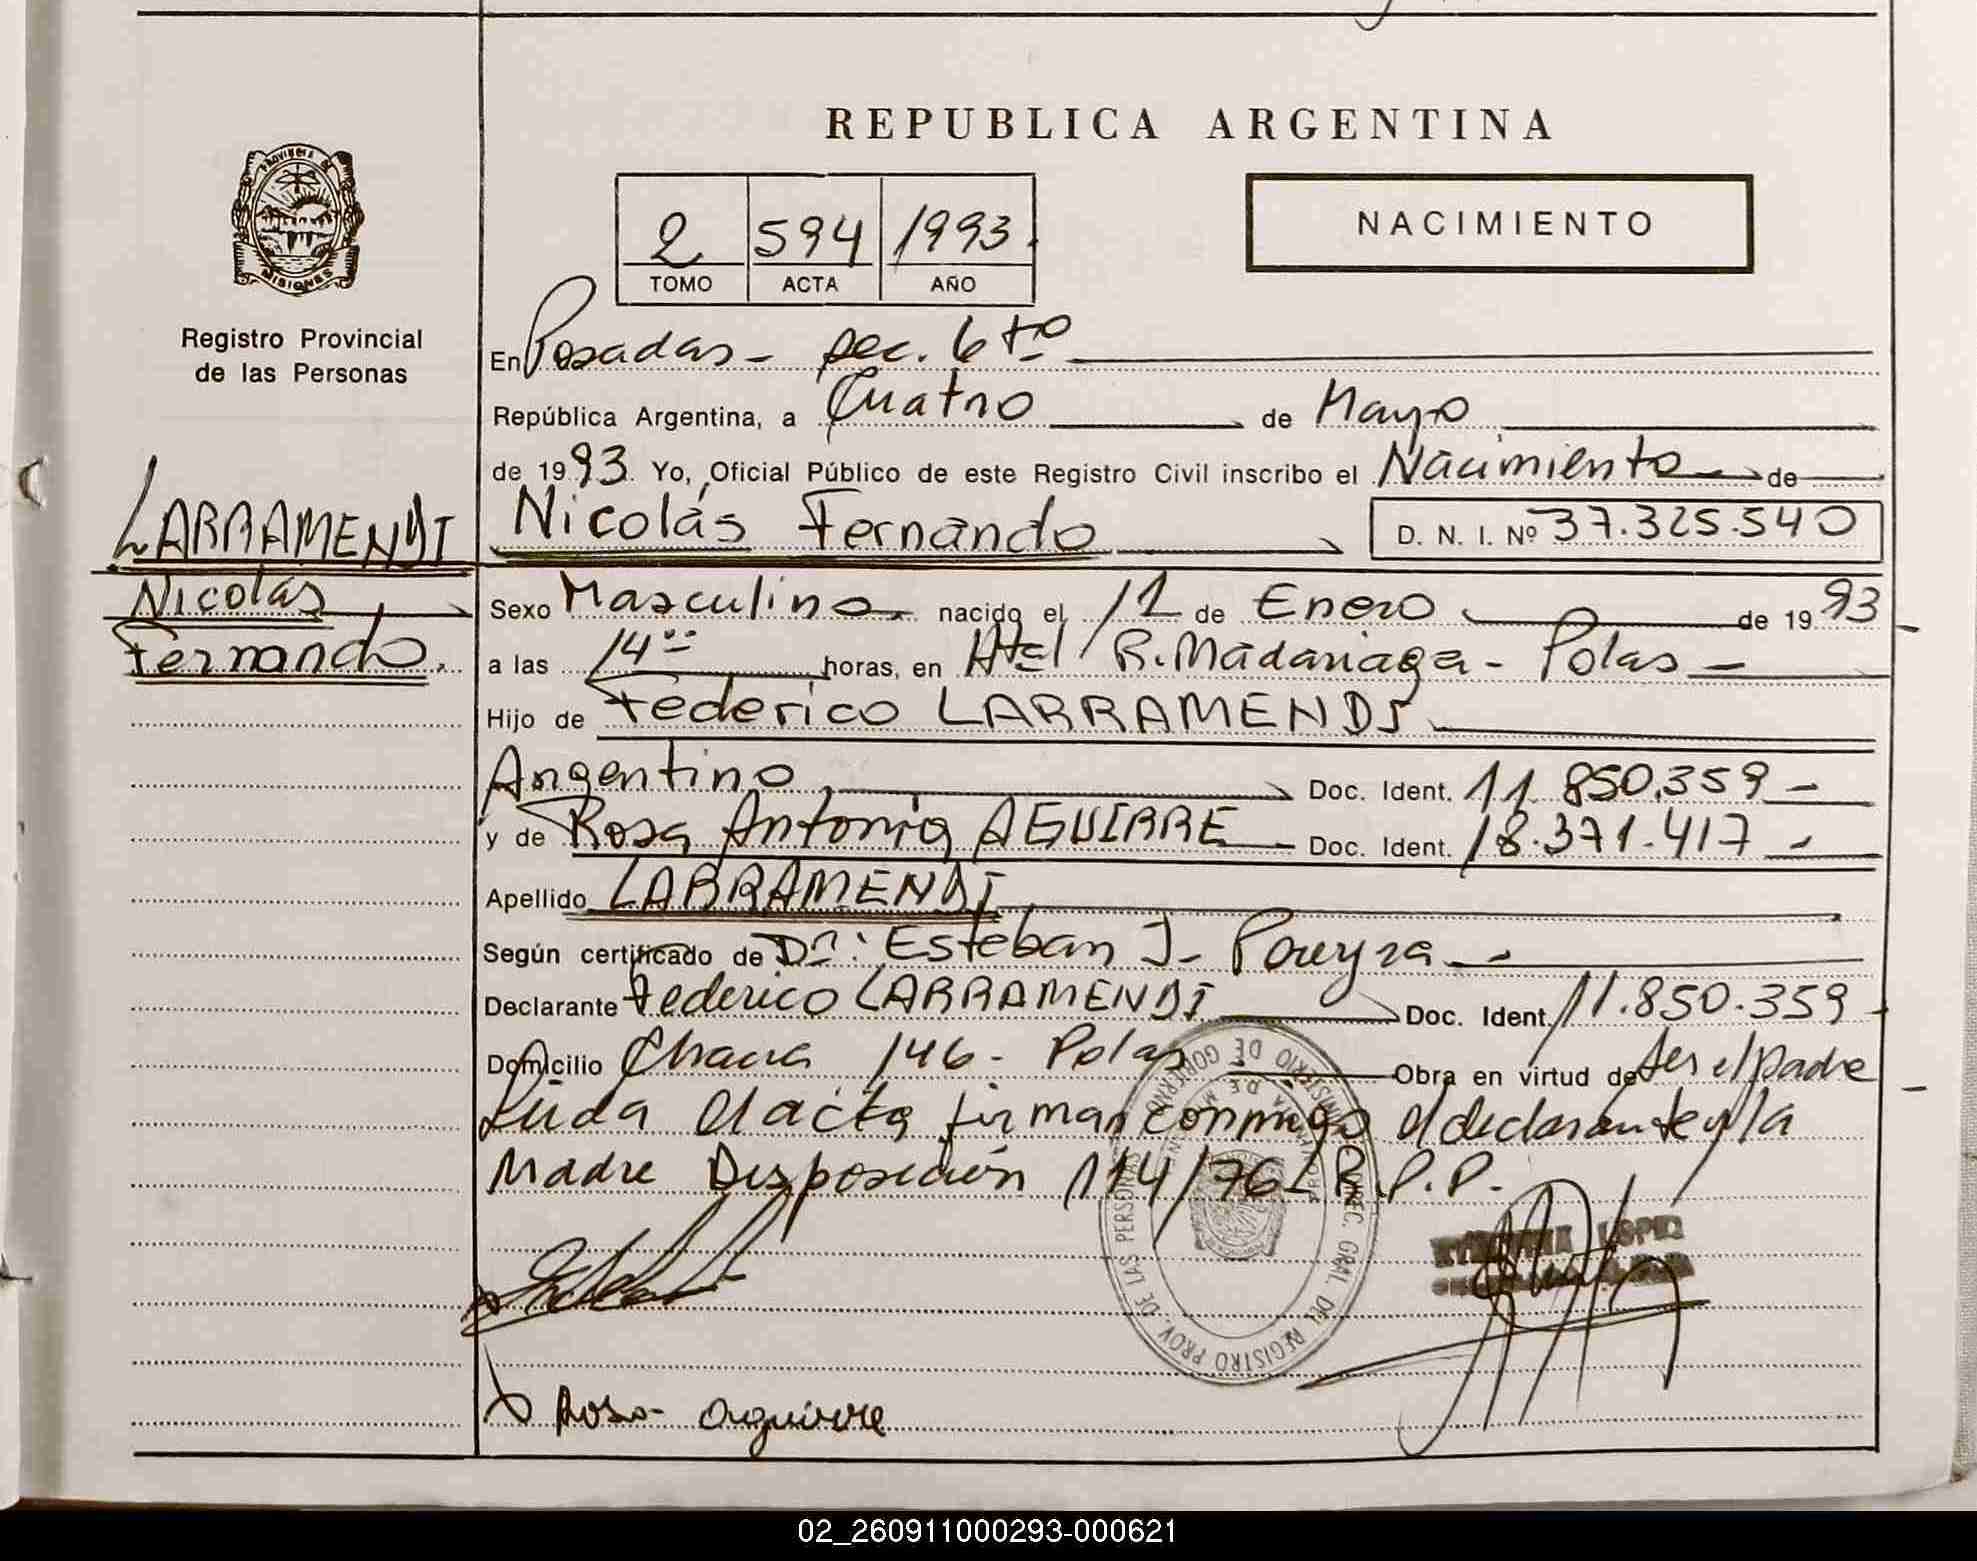 REPUBLICA ARGENTINA
PROVINCIA DE
MISIONES
Registro Provincial
de las Personas
2 594 1993
TOMO ACTA AÑO
NACIMIENTO
En Posadas - sec. 6ta
República Argentina, a Cuatro de Mayo
de 1993. Yo, Oficial Público de este Registro Civil inscribo el Nacimiento de
LARRAMENDI
Nicolás
Fernando.
Nicolás Fernando D. N. I. Nº 37.325.540
Sexo Masculino nacido el 11 de Enero de 1993
a las 14 horas, en Htal R. Madariaga - Pdas -
Hijo de Federico LARRAMENDI
Argentino Doc. Ident. 11.850.359 -
y de Rosa Antonia AGUIRRE Doc. Ident. 18.371.417 -
Apellido LARRAMENDI
Según certificado de Dr. Esteban J. Poueyra
Declarante Federico LARRAMENDI Doc. Ident. 11.850.359
Domicilio Chacra 146 - Pdas Obra en virtud de ser el padre
Leída el acta firman conmigo el declarante y la
Madre Disposición 114/76 R.P.P.
MINISTERIO DE GOBIERNO
DIREC. GRAL. DEL REGISTRO PROV. DE LAS PERSONAS
LOPEZ
Rosa aguirre
02_260911000293-000621